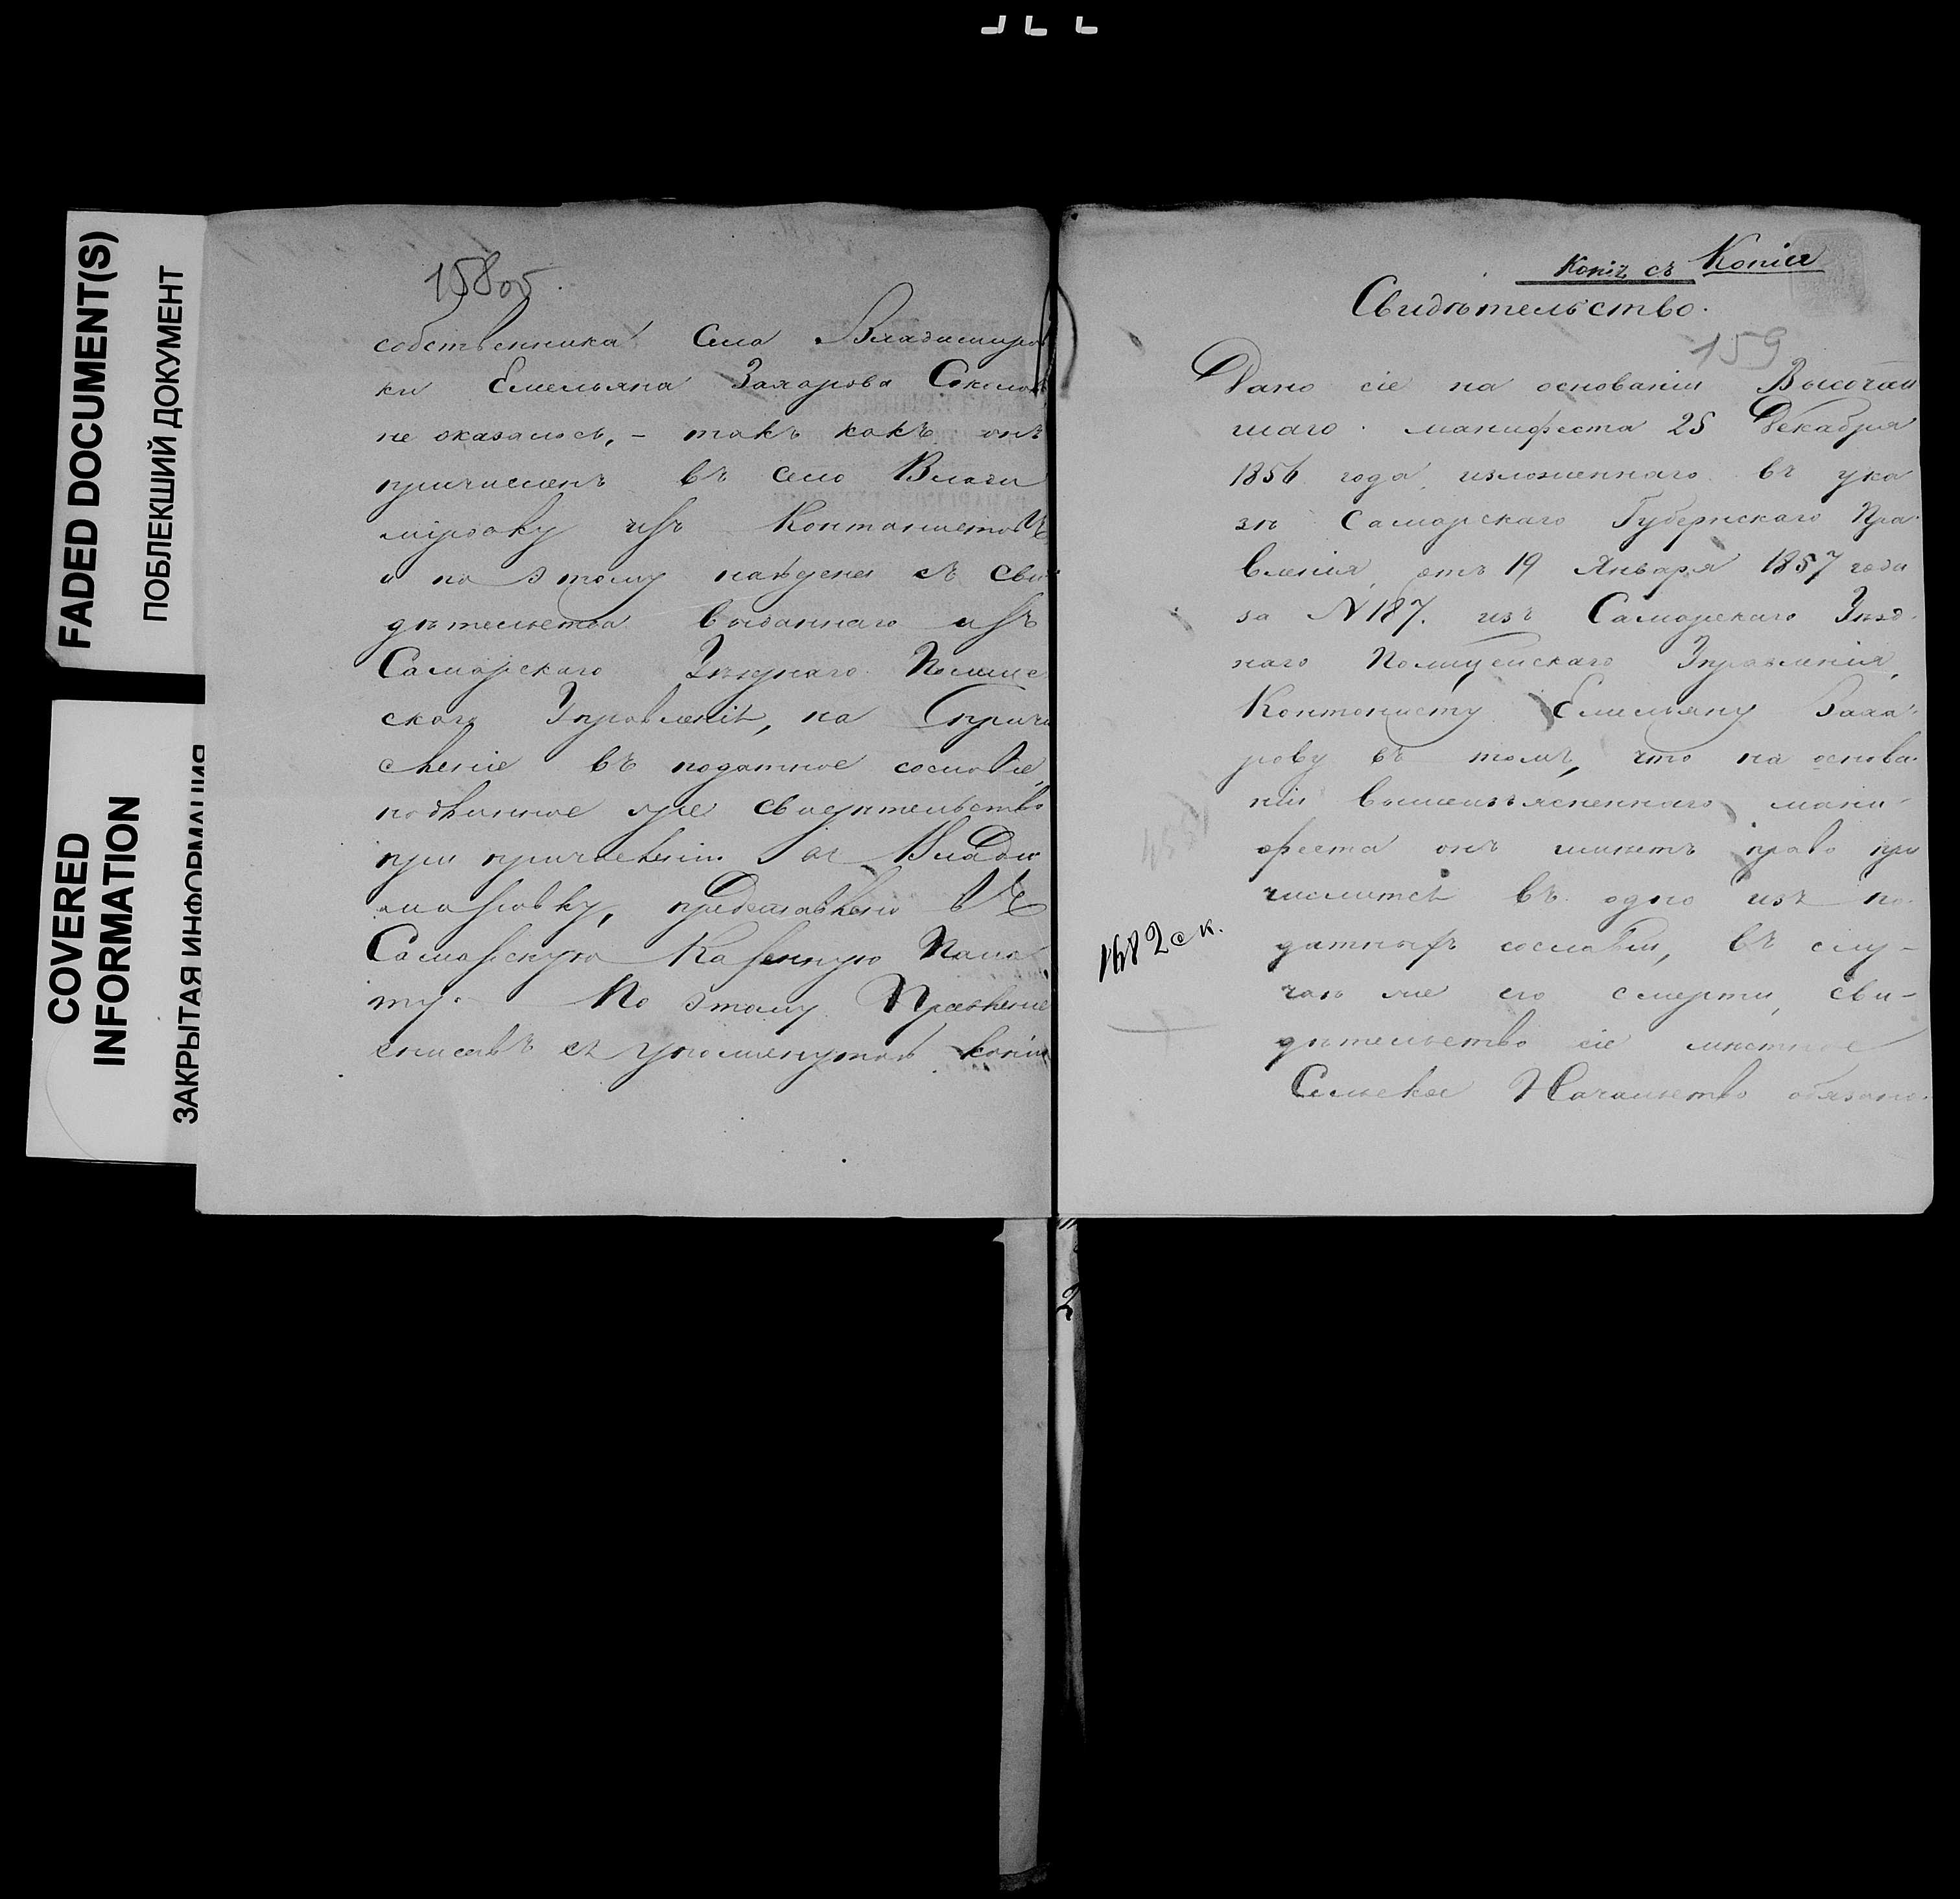 FADED DOCUMENT(S)
ПОБЛЕКШИЙ ДОКУМЕНТ
COVERED
INFORMATION
ЗАКРЫТАЯ ИНФОРМАЦИЯ
158 об.
собственника Села Владимиров
ки Емельяна Захарова Соколов
не оказалось, – такъ какъ онъ
причисленъ въ село Влади
міровку изъ Контонистовъ
и по этому найдена съ сви
дѣтельства выданнаго изъ
Самарскаго Уѣзднаго Полице
скаго Управленія, на причи
сленіе въ податное сословіе,
подлинное же свидѣтельство
при причисленіи въ Влади
мировку, представлено въ
Самарскую Казенную Пала
ту. По этому Правленіе
списавъ съ упомянутой копіи
Копія съ Копіи
Свидѣтельство.
159
Дано сіе на основаніи Высочай
шаго манифеста 25 Декабря
1856 года изложеннаго въ ука
зѣ Самарскаго Губернскаго Пра
вленія, отъ 19 Января 1857 года
за N 187. изъ Самарскаго Уѣзд
наго Полицейскаго Управленія,
Контонисту Емельяну Заха
рову въ томъ, что на основа
ніи вышеизъясненнаго мани
феста онъ имѣетъ право при
числится въ одно изъ по
датныхъ сословій, въ слу–
чаѣ же его смерти, сви–
дѣтельство сіе мѣстное
Сельское Начальство обязано
1682 с к.